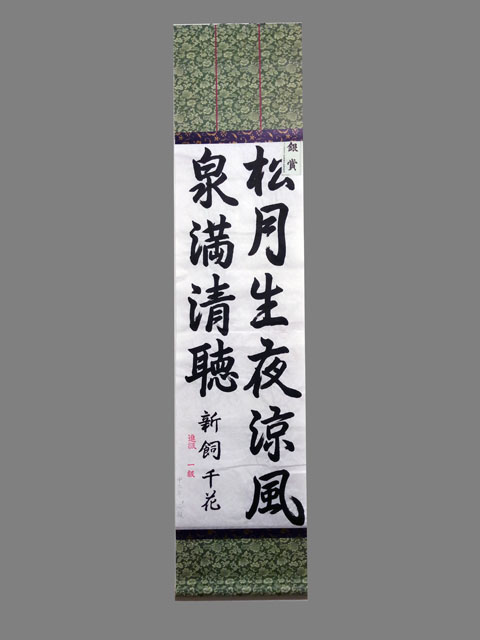 銀賞
松月生夜涼風
泉満清聴
新飼千花
一級